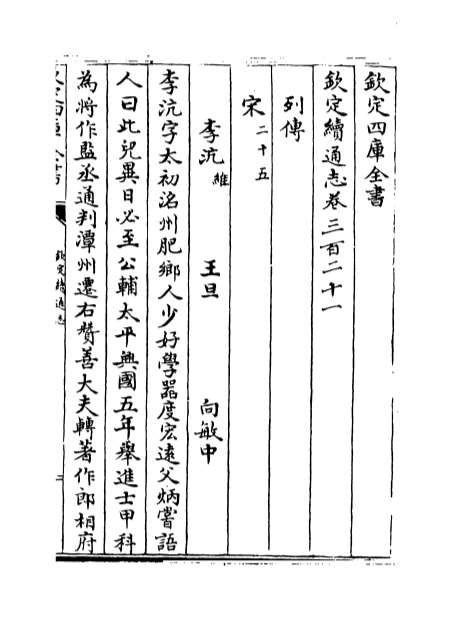 欽定四庫全書
欽定續通志卷三百二十一
列傳
宋二十五
李沆維 王旦 向敏中
李沆字太初洺州肥鄉人少好學器度宏遠父炳嘗語
人曰此兒異日必至公輔太平興國五年舉進士甲科
為將作監丞通判潭州遷右贊善大夫轉著作郎相府
欽定續通志